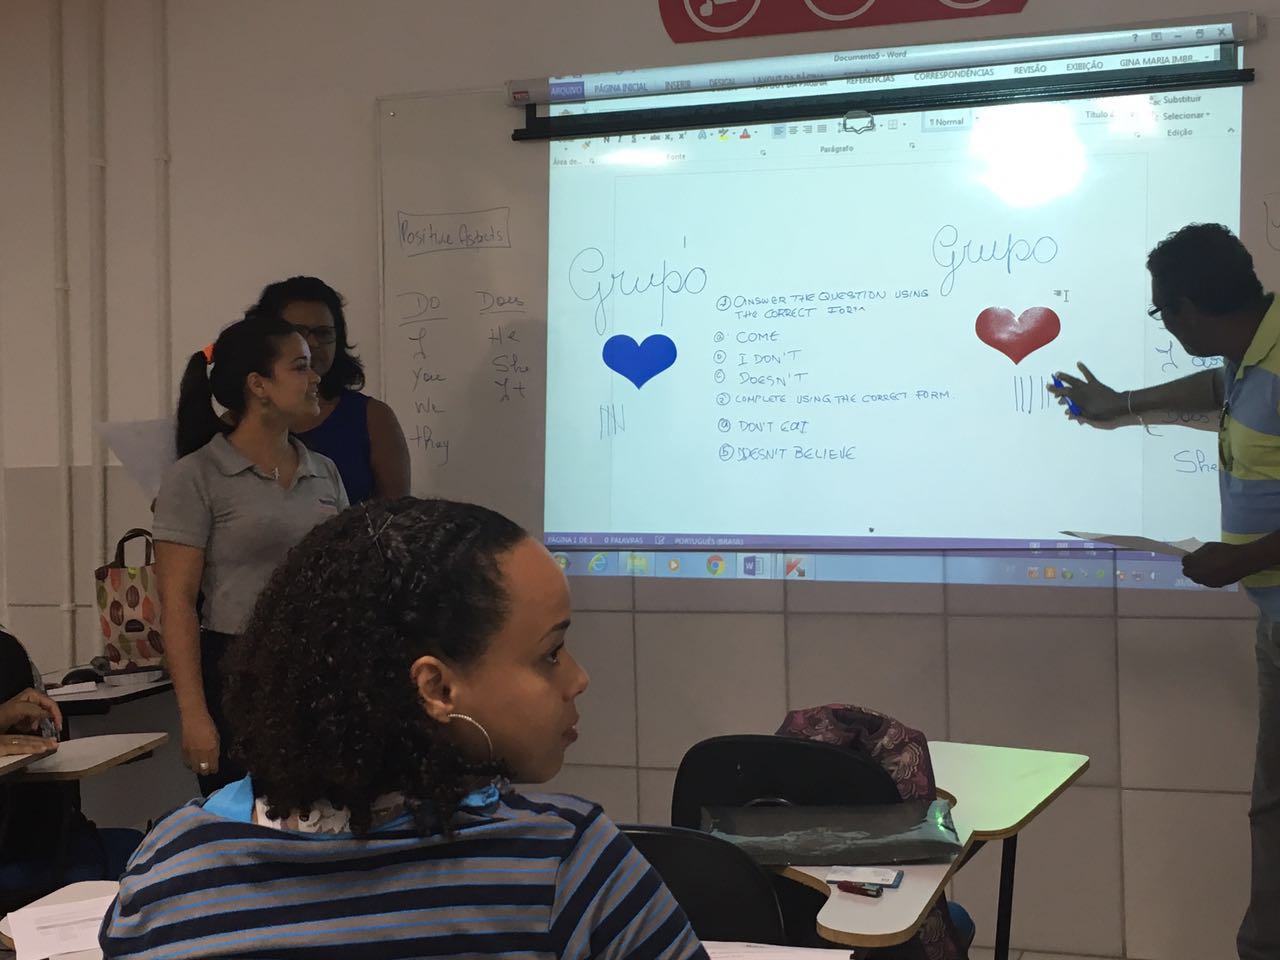 Documento5 - Word
ARQUIVO PÁGINA INICIAL INSERIR DESIGN LAYOUT DA PÁGINA REFERÊNCIAS CORRESPONDÊNCIAS REVISÃO EXIBIÇÃO GINA MARIA IMBR...
Substituir
¶ Normal
Título
Selecionar
Área de...
Fonte
Parágrafo
Edição
Positive
Do Does
I He
You She
We It
they
Grupo
Grupo
1 ANSWER THE QUESTION USING
THE CORRECT FORM
a COME
b I DON'T
c DOESN'T
2 COMPLETE USING THE CORRECT FORM.
a DON'T EAT
b DOESN'T BELIEVE
I
Does
She
PÁGINA 1 DE 1 0 PALAVRAS PORTUGUÊS (BRASIL)